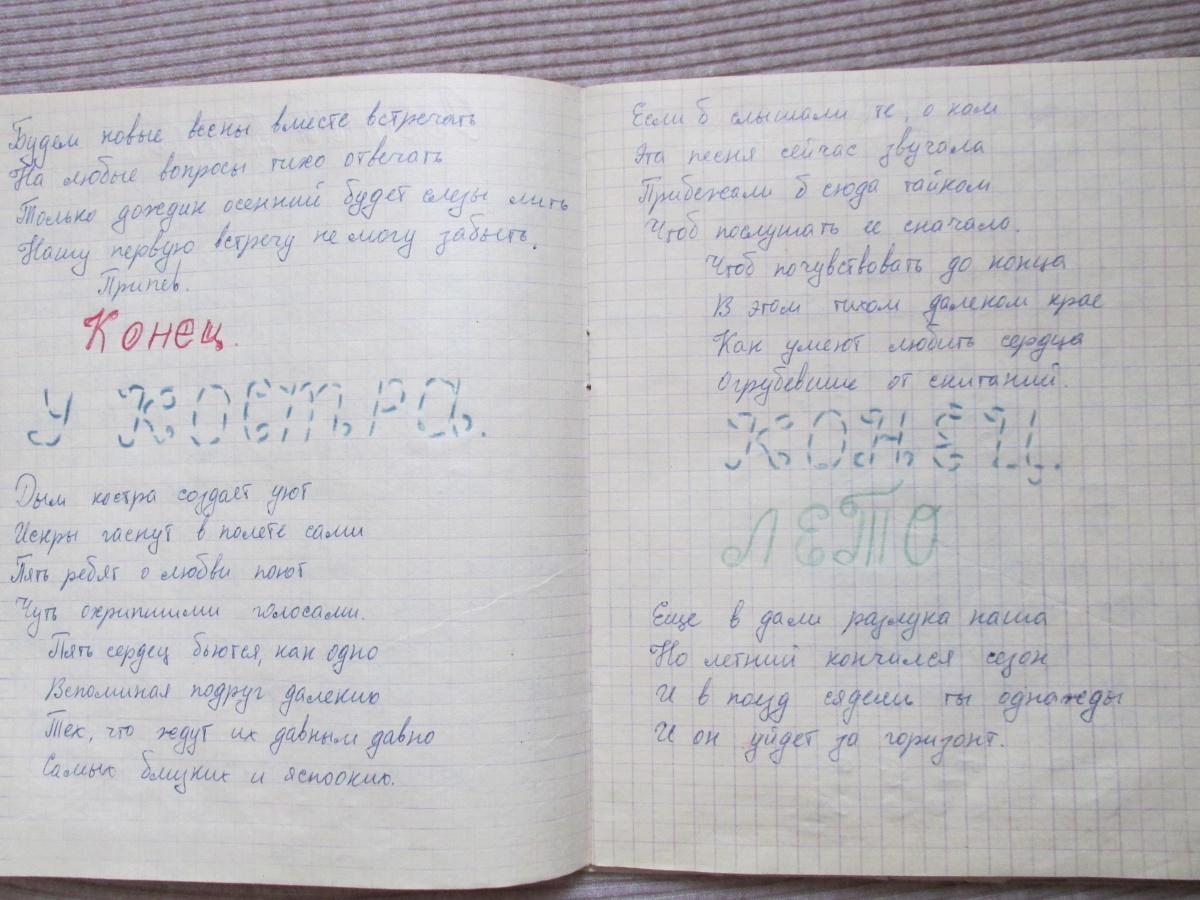 Будем новые весны вместе встречать
На любые вопросы тихо отвечать
Только дождик осенний будет слезы лить
Нашу первую встречу не могу забыть.
Припев.
Конец.
У КОСТРА.
Дым костра создает уют
Искры гаснут в полете сами
Пять ребят о любви поют
Чуть охрипшими голосами.
Пять сердец бьются, как одно
Вспоминая подруг далеких
Тех, что ждут их давным давно
Самых близких и ясnооких.
Если б слышали те, о ком
Эта песня сейчас звучала
Прибежали б сюда тайком
Чтоб послушать ее сначало.
Чтоб почувствовать до конца
В этом тихом далеком крае
Как умеют любить сердца
Огрубевшие от скитаний.
КОНЕЦ.
ЛЕТО
Еще в дали разлука наша
Но летний кончился сезон
И в поезд сядешь ты однажды
И он уйдет за горизонт.